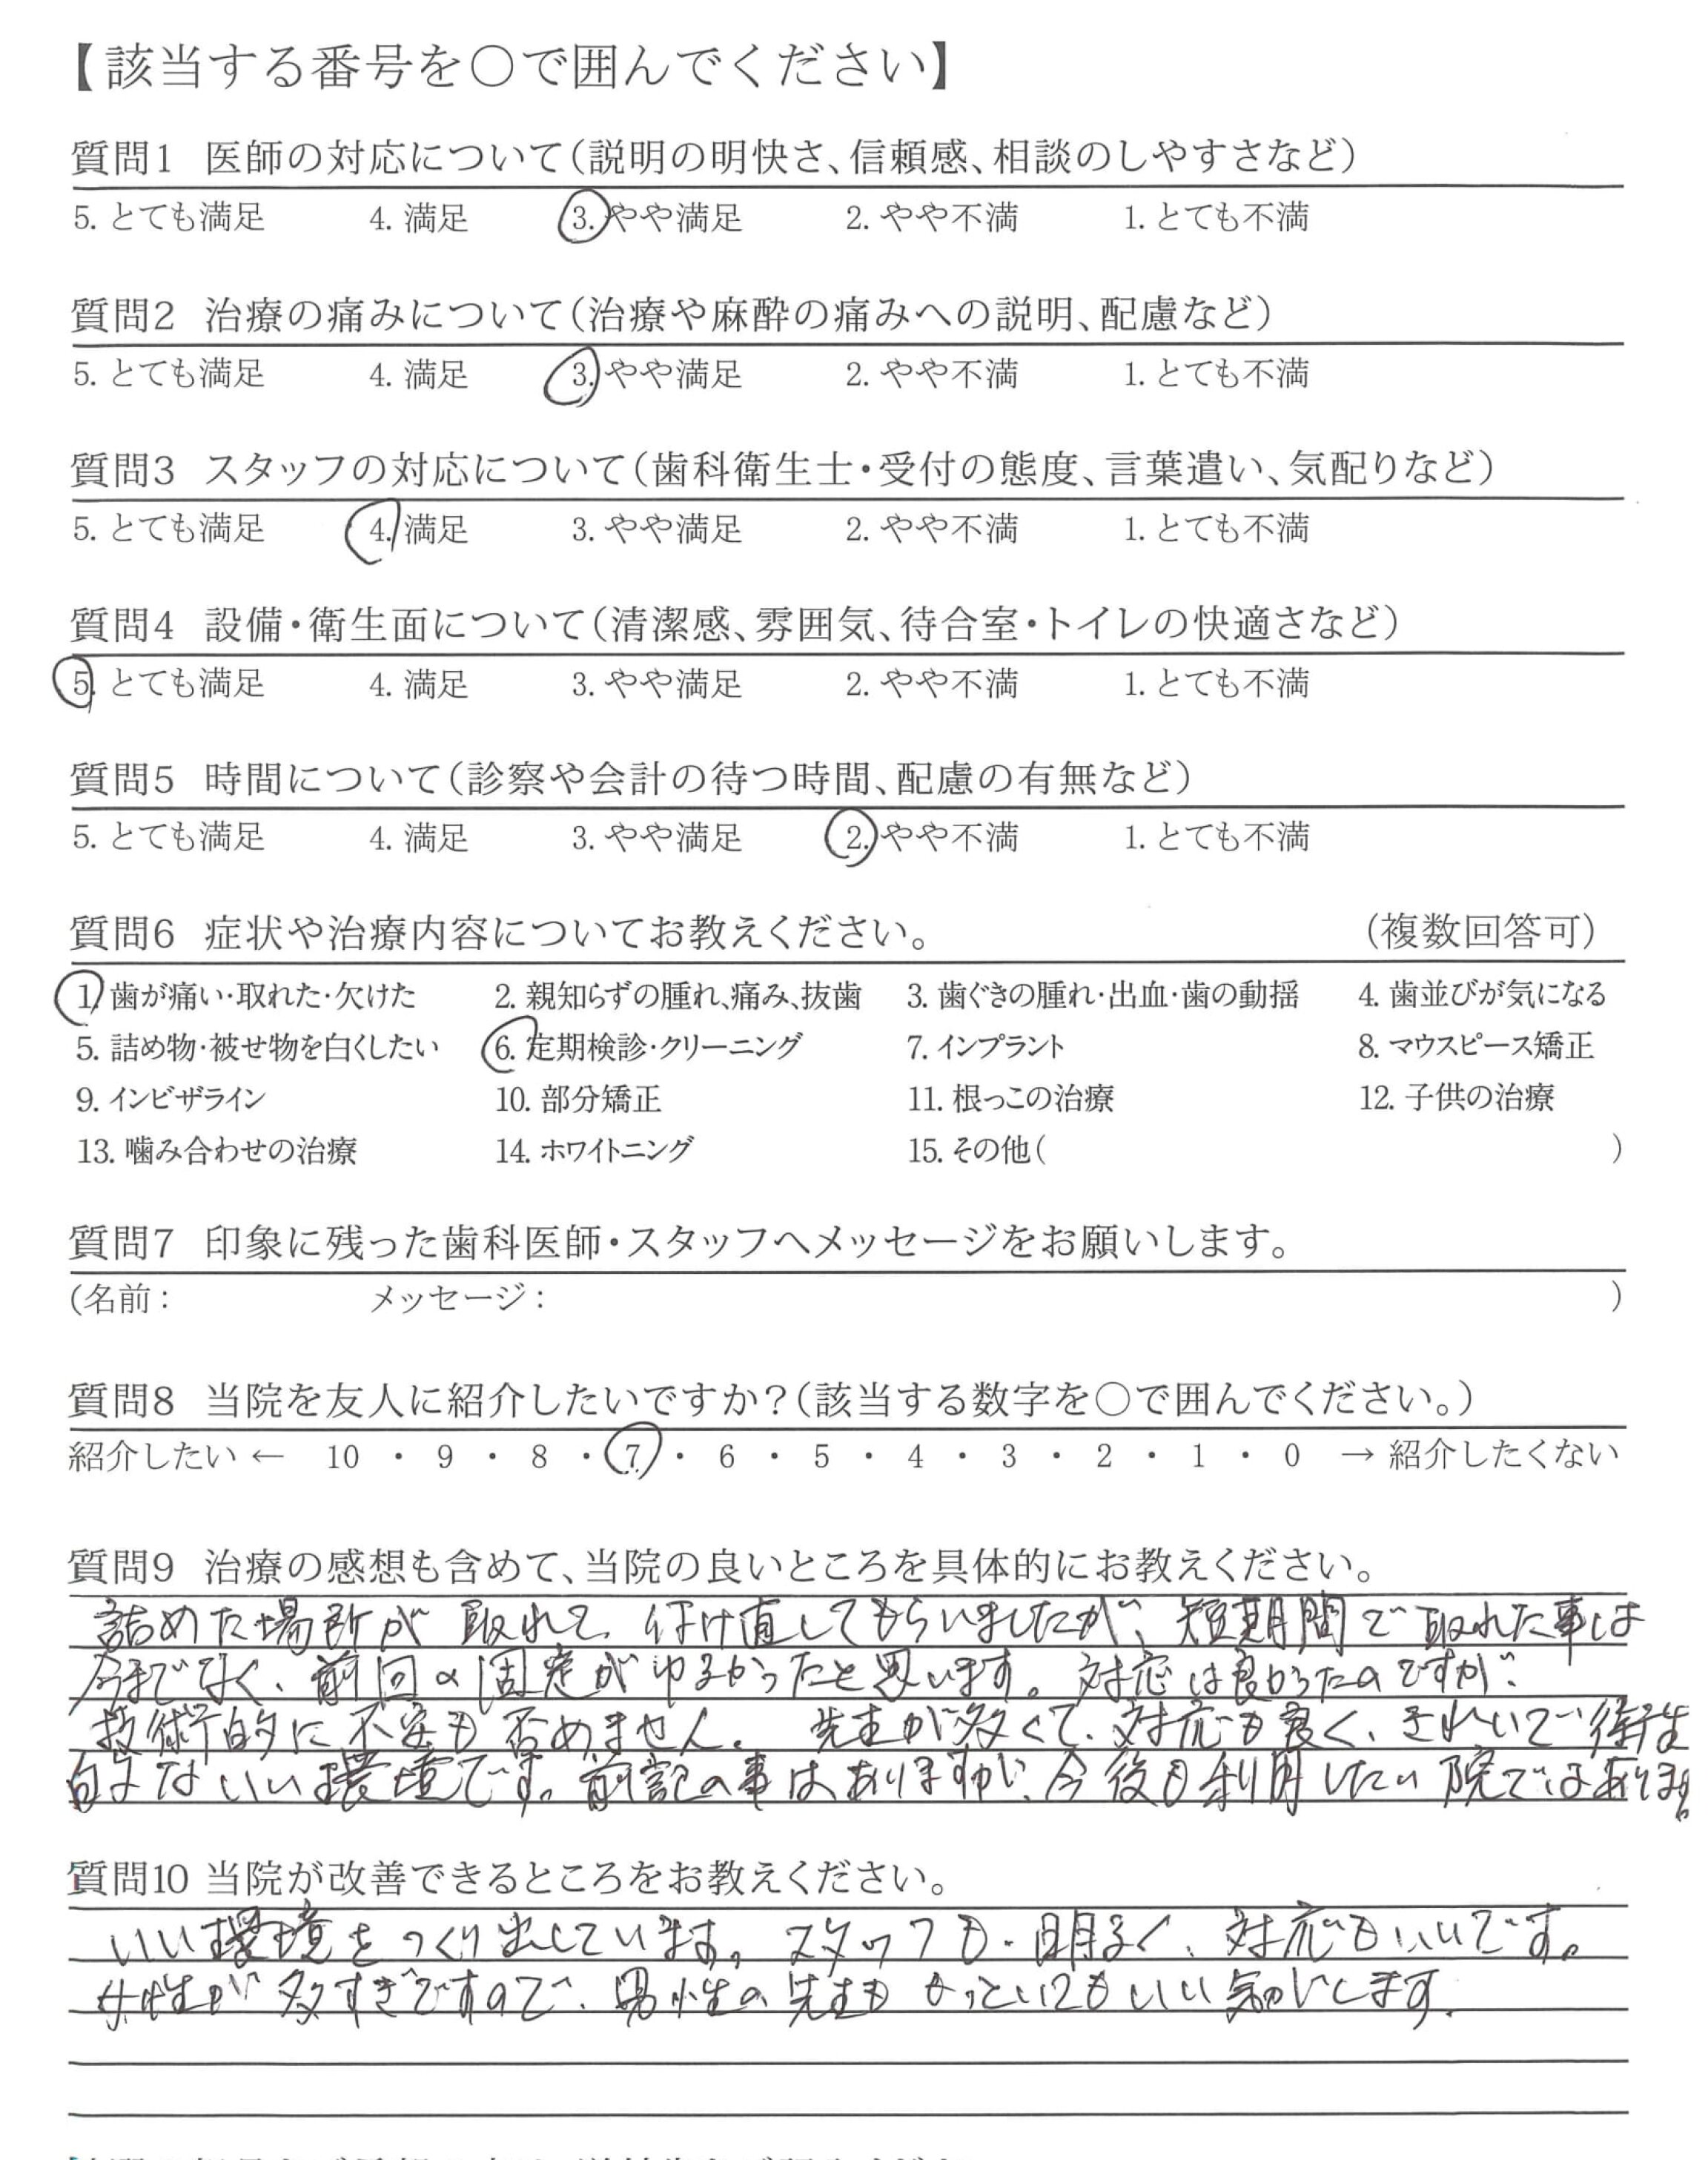 【該当する番号を○で囲んでください】
質問1 医師の対応について(説明の明快さ、信頼感、相談のしやすさなど)
5. とても満足 4. 満足 3. やや満足 2. やや不満 1. とても不満
質問2 治療の痛みについて(治療や麻酔の痛みへの説明、配慮など)
5. とても満足 4. 満足 3. やや満足 2. やや不満 1. とても不満
質問3 スタッフの対応について(歯科衛生士・受付の態度、言葉遣い、気配りなど)
5. とても満足 4. 満足 3. やや満足 2. やや不満 1. とても不満
質問4 設備・衛生面について(清潔感、雰囲気、待合室・トイレの快適さなど)
5. とても満足 4. 満足 3. やや満足 2. やや不満 1. とても不満
質問5 時間について(診察や会計の待つ時間、配慮の有無など)
5. とても満足 4. 満足 3. やや満足 2. やや不満 1. とても不満
質問6 症状や治療内容についてお教えください。 (複数回答可)
1. 歯が痛い・取れた・欠けた 2. 親知らずの腫れ、痛み、抜歯 3. 歯ぐきの腫れ・出血・歯の動揺 4. 歯並びが気になる
5. 詰め物・被せ物を白くしたい 6. 定期検診・クリーニング 7. インプラント 8. マウスピース矯正
9. インビザライン 10. 部分矯正 11. 根っこの治療 12. 子供の治療
13. 噛み合わせの治療 14. ホワイトニング 15. その他( )
質問7 印象に残った歯科医師・スタッフへメッセージをお願いします。
(名前: メッセージ: )
質問8 当院を友人に紹介したいですか?(該当する数字を○で囲んでください。)
紹介したい ← 10 ・ 9 ・ 8 ・ 7 ・ 6 ・ 5 ・ 4 ・ 3 ・ 2 ・ 1 ・ 0 → 紹介したくない
質問9 治療の感想も含めて、当院の良いところを具体的にお教えください。
詰めた場所が取れて、付け直してもらいましたが、短期間で取れた事は
今までなく、前回の固定がゆるかったと思います。対応は良かったのですが、
技術的に不安も否めません。先生が多くて、対応も良く、きれいで衛生
的ないい環境です。前記の事はありますが、今後も利用したい院ではあります。
質問10 当院が改善できるところをお教えください。
いい環境をつくり出しています。スタッフも明るく、対応もいいです。
女性が多すぎですので、男性の先生ももっといてもいい気がします。